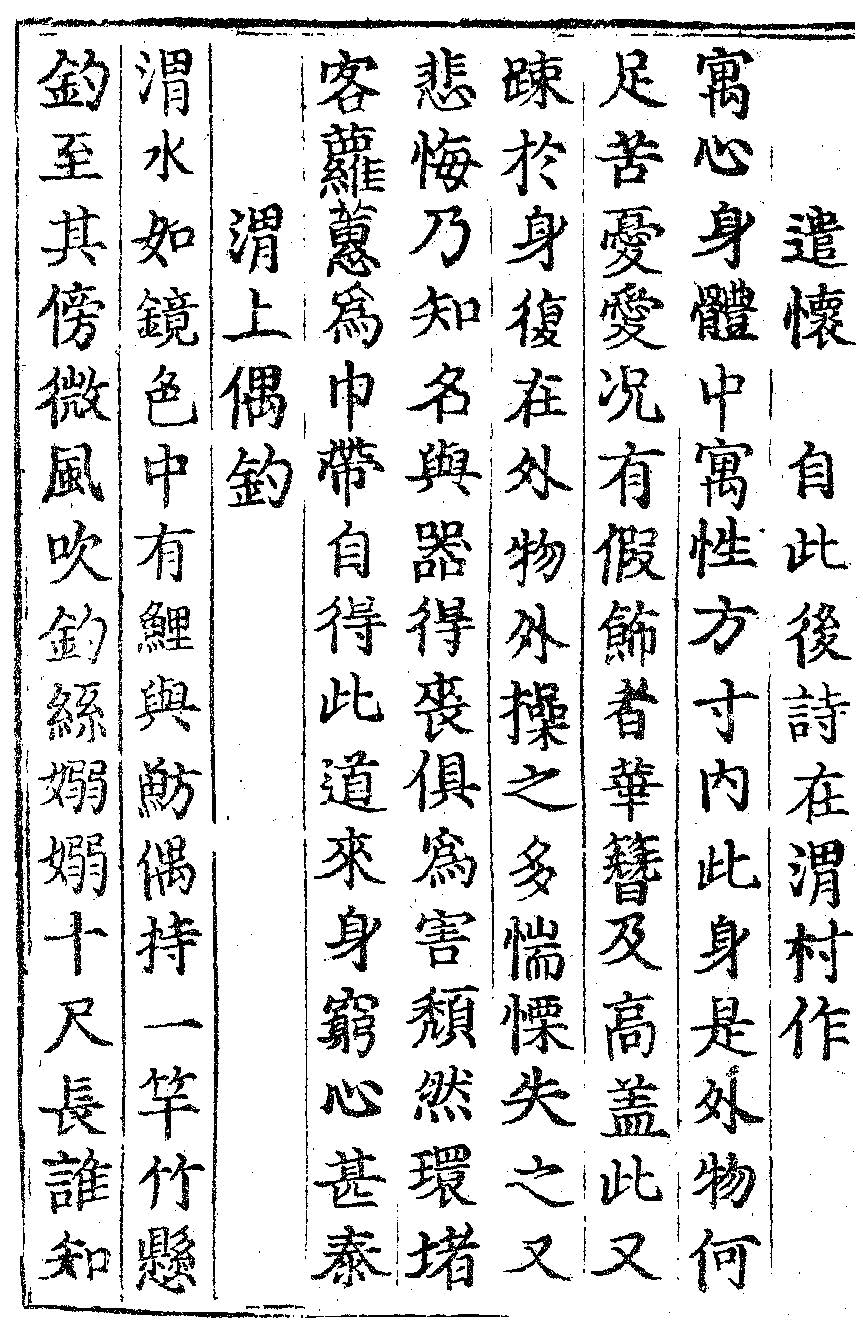 遣懷　自此後詩在渭村作
寓心身體中寓性方寸内此身是外物何
足苦憂愛况有假飾者華簪及高盖此又
踈於身復在外物外操之多惴慄失之又
悲悔乃知名與器得喪俱爲害頽然環堵
客蘿蕙爲巾帶自得此道來身窮心甚泰
渭上偶釣
渭水如鏡色中有鯉與魴偶持一竿竹懸
釣至其傍微風吹釣絲嫋嫋十尺長誰知